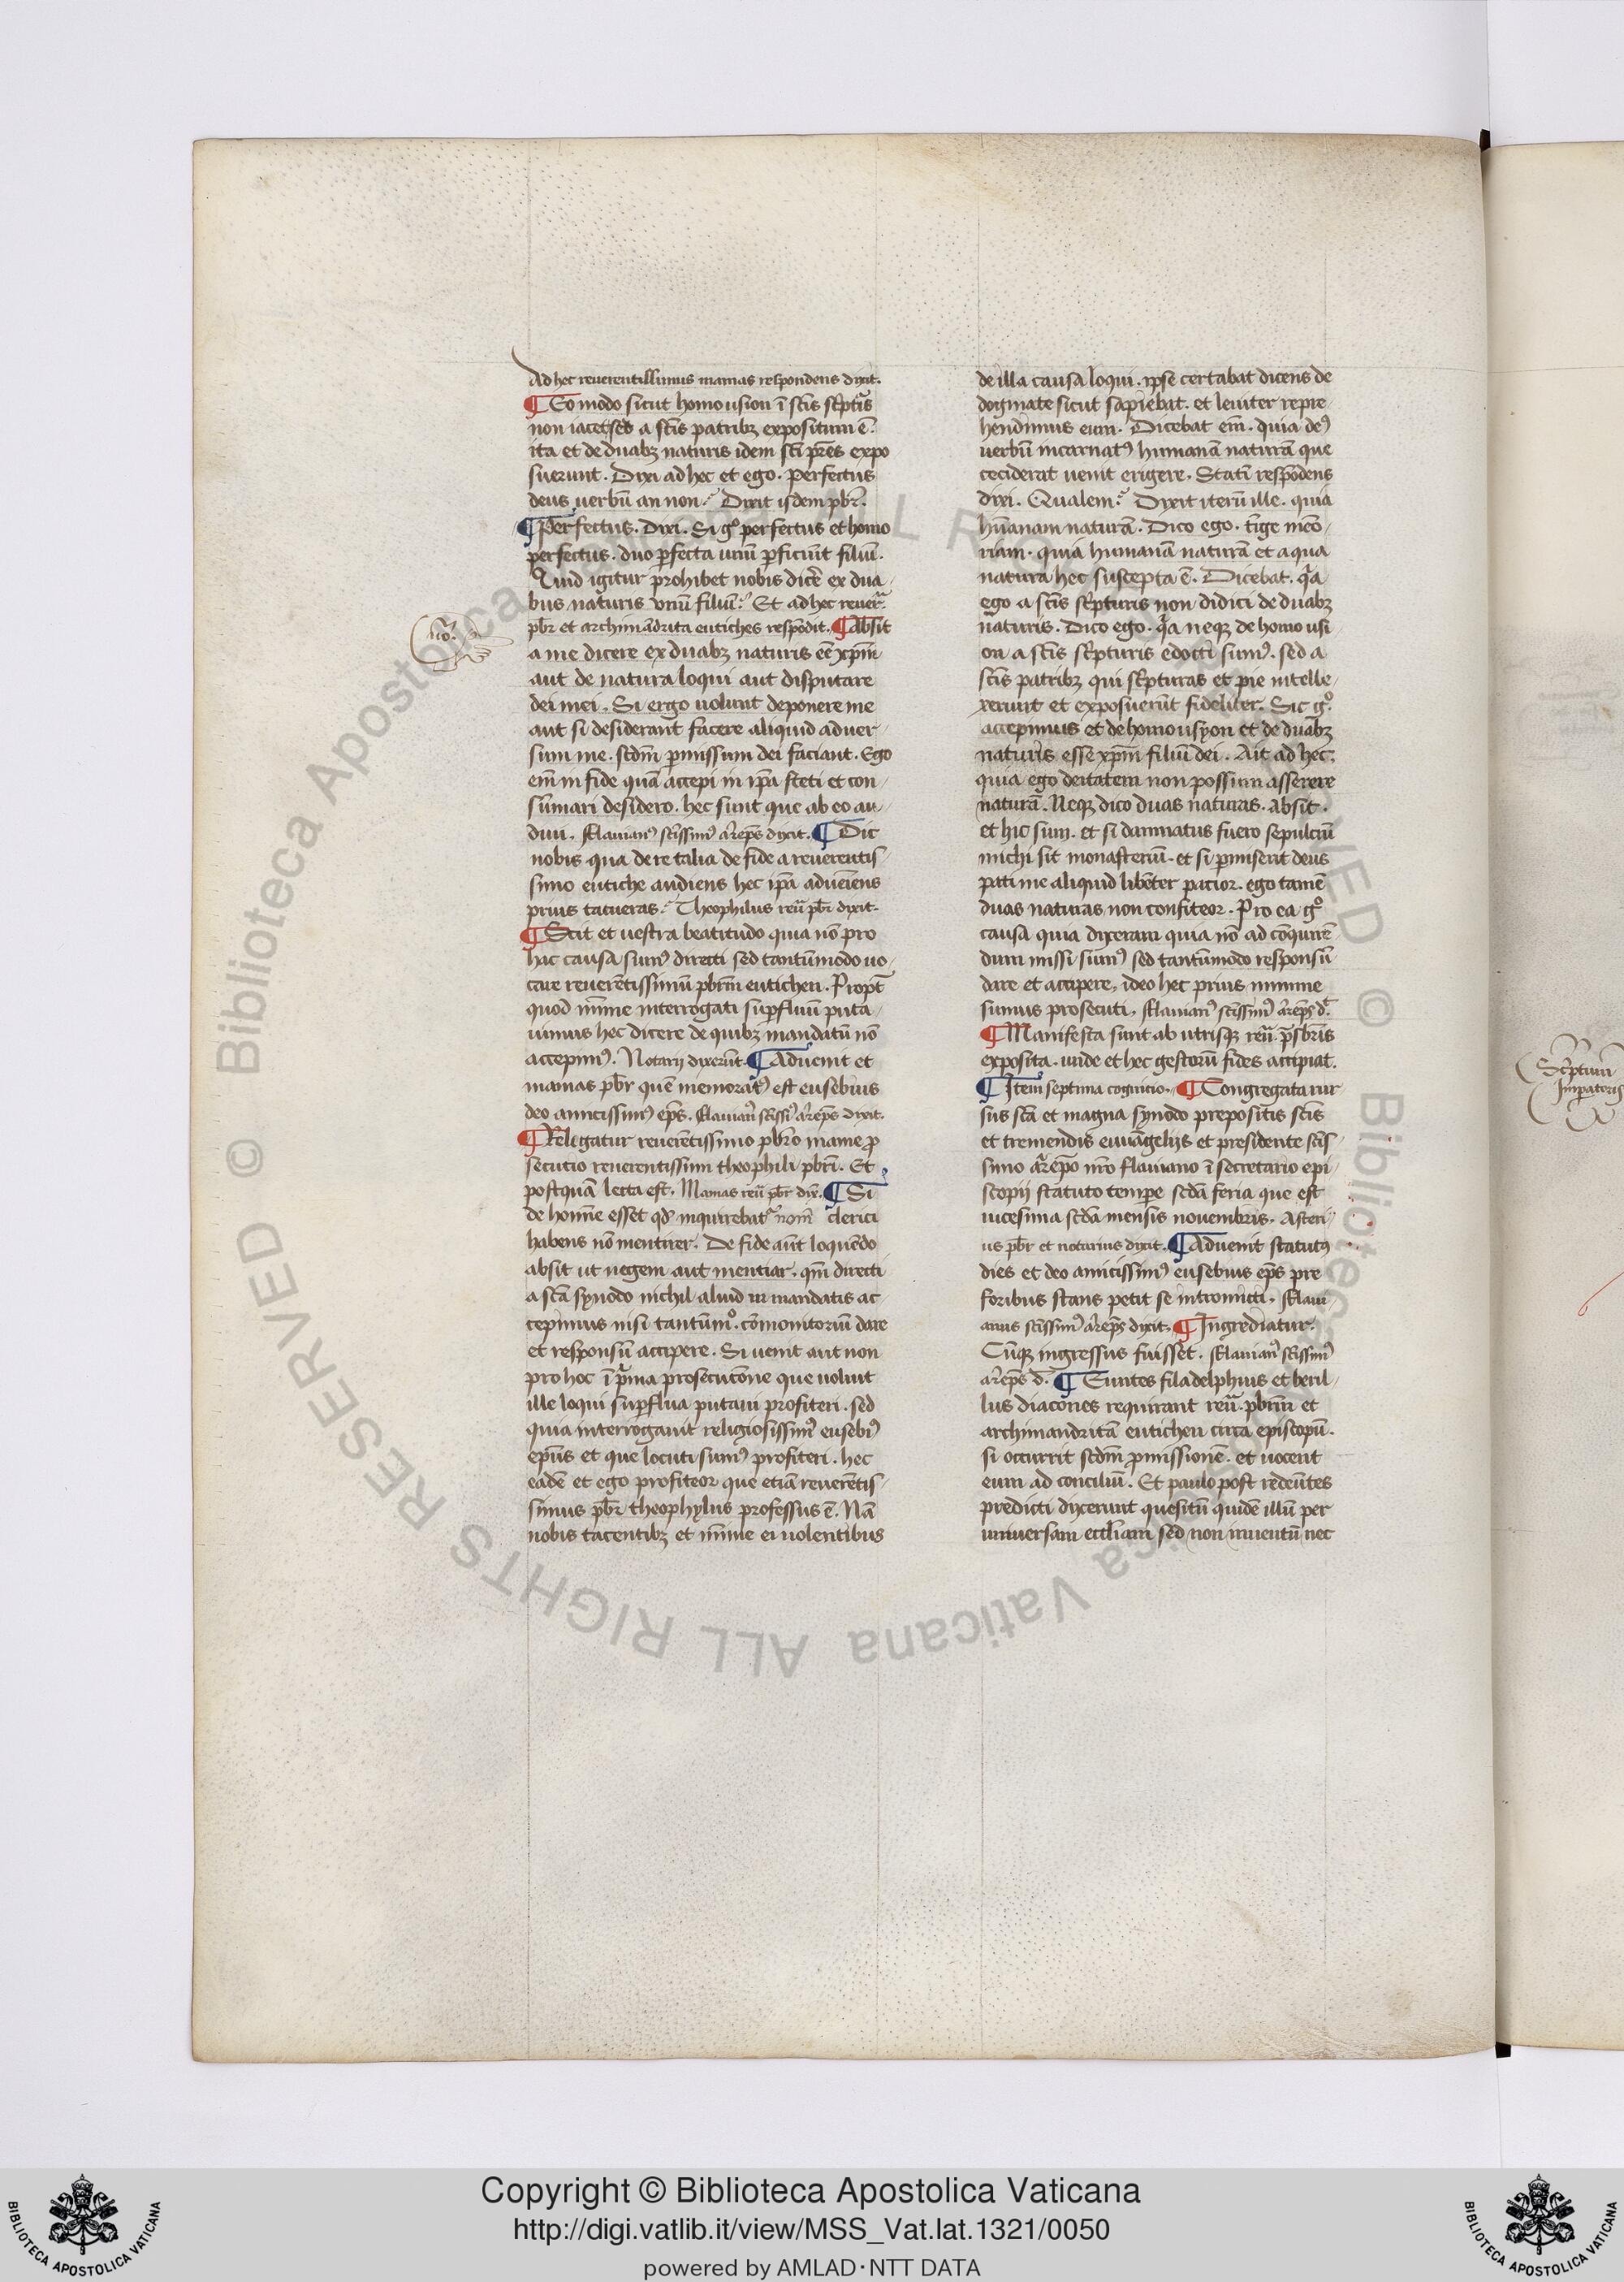 Ad hec reuerentissimus mamas respondens dixit.
¶ Eo modo sicut homousion ĩ scĩs sc͛ptᷣis
non iacet sed a scĩs patribꝫ expositum ẽ.
ita et de duabꝫ naturis idem scĩ pr̃es expo
suerunt. Dixi ad hec et ego. Perfectus
deus uerbũ an non? Dixit isdem pb̃r.
¶ Perfectus. Dixi. Si g° perfectus et homo
perfectus. duo ꝑfecta unũ ꝑficiũt filiũ.
Quid igitur prohibet nobis dicẽ ex dua
bus naturis vnũ filiũ? Et ad hec reuer᷑.
pb̃r et archimãdrita eutiches respõdit. ¶ Absit
a me dicere ex duabꝫ naturis eẽ xp̃m
aut de natura loqui aut disputare
dei mei. Si ergo uolunt deponere me
aut si desiderant facere aliquid aduer
sum me. scd̃m ꝑmissum dei faciant. Ego
em̃ in fide quã accepi in ip̃a steti et con
sũmari desidero. hec sunt que ab eo au
diui. Flauianꝰ scissimꝰ ar̃ep̃s dixit. ¶ Dic
nobis qua de re talia de fide a reuerentis
simo eutiche audiens hec ip̃a adueniens
prius tacueras? Theophilus reũ pb̃r dixit.
¶ Scit et uestra beatitudo quia nõ pro
hac causa sumꝰ directi sed tantũmodo uo
care reuerẽtissimũ pbr̃m eutichen. Propt̃
quod mĩme interrogati suꝑfluũ puta
uimus hec dicere de quibꝫ mandatũ nõ
accepimꝰ. Notarij dixerũt. ¶ Aduenit et
mamas pb̃r quẽ memoratꝰ est eusebius
deo amicissimꝰ ep̃s. Flauianꝰ scissĩꝰ ar̃ep̃s dixit.
¶ Relegatur reuerẽtissimo pbr̃o mame ꝓ
secutio reuerentissimi theophili pbr̃i. Et
postquã lecta est. Mamas reũ pb̃r dix̃. ¶ Si
de homĩe esset qd̃ inquirebat᷑ nom̃ clerici
habens nõ mentirer. De fide aũt loquẽdo
absit ut negem aut mentiar. qm̃ directi
a scã synodo nichil aliud in mandatis ac
cepimus nisi tantũm°. cõmonitoriũ dare
et responsũ accipere. Si uenit aut non
pro hoc ĩ pⁱma prosecutiõne que uoluit
ille loqui suꝑflua putaui profiteri. sed
quia interrogauit religiosissimꝰ eusebiꝰ
ep̃us et que locuti sumꝰ profiteri. hec
eadẽ et ego profiteor que etiã reuerẽtis
simus pb̃r theophylus professus ẽ. Nã
nobis tacentibꝫ et mĩme ei uolentibus
de illa causa loqui. ipse certabat dicens de
dogmate sicut sapiebat. et leuiter repre
hendimus eum. Dicebat em̃. quia deꝰ
uerbũ incarnatꝰ humanã naturã que
ceciderat uenit erigere. Statĩ respõdens
dixi. Qualem? Dyxit iterũ ille. quia
hũanam naturã. Dico ego. tĩge mẽo
riam. quia humanã naturã et a qua
natura hec suscepta ẽ. Dicebat. qᷓa
ego a scĩs sc͛pturis non didici de duabꝫ
naturis. Dico ego. qᷓa neqꝫ de homo usi
on a scĩs sc͛pturis edocti sumꝰ. sed a
scĩs patribꝫ qui sc͛pturas et pie intelle
xerunt et exposuerũt fideliter. Sic g°.
accepimus et de homousyon et de duabꝫ
naturis esse xp̃m filiũ dei. Ait ad hec.
quia ego deitatem non possum asserere
naturã. Neqꝫ dico duas naturas. absit.
et hic sum. et si damnatus fuero sepulcrũ
michi sit monasteriũ. et si ꝑmiserit deus
pati me aliquid libẽter patior. ego tamẽ
duas naturas non confiteor. Pro ea g°
causa quia dixeram quia nõ ad cõquirẽ
dum missi sumꝰ sed tantũmodo responsũ
dare et accipere, ideo hec prius minime
sumus prosecuti. Flauianꝰ scissimꝰ ar̃ep̃s d̃.
¶ Manifesta sunt ab utrisqꝫ reũ. p̃sbr̃is
exposita. unde et hec gestorũ fides accipiat.
¶ Item septima cognitio. ¶ Congregata rur
sus scã et magna synodo prepositis scĩs
et tremendis euuãgelijs et presidente scĩs
simo ar̃ep̃o nr̃o flauiano ĩ secretario epi
scopij statuto tempẽ scd̃a feria que est
uicesima scd̃a mensis nouembris. Asteri
us pb̃r et notarius dixit. ¶ Aduenit statutꝰ
dies et deo amicissimꝰ eusebius ep̃s pre
foribus stans petit se intromitti. Flaui
anus scissimꝰ ar̃ep̃s dyxit. ¶ Ingrediatur.
Cũqꝫ ingressus fuisset. Flauianꝰ scissimꝰ
ar̃ep̃s d̃. ¶ Euntes filadelphius et beril
lus diacones requirant reũ. pbr̃m et
archimandritã eutichen circa episcopũ.
si occurrit scd̃m ꝓmissionẽ. et uocent
eum ad conciliũ. Et paulo post redeũtes
predicti dixerunt quesitũ quidẽ illũ per
uniuersam eccl̃iam sed non inuentũ nec
Sc͛ptum
Imperatoris
Copyright © Biblioteca Apostolica Vaticana
http://digi.vatlib.it/view/MSS_Vat.lat.1321/0050
powered by AMLAD·NTT DATA
BIBLIOTECA APOSTOLICA VATICANA
BIBLIOTECA APOSTOLICA VATICANA